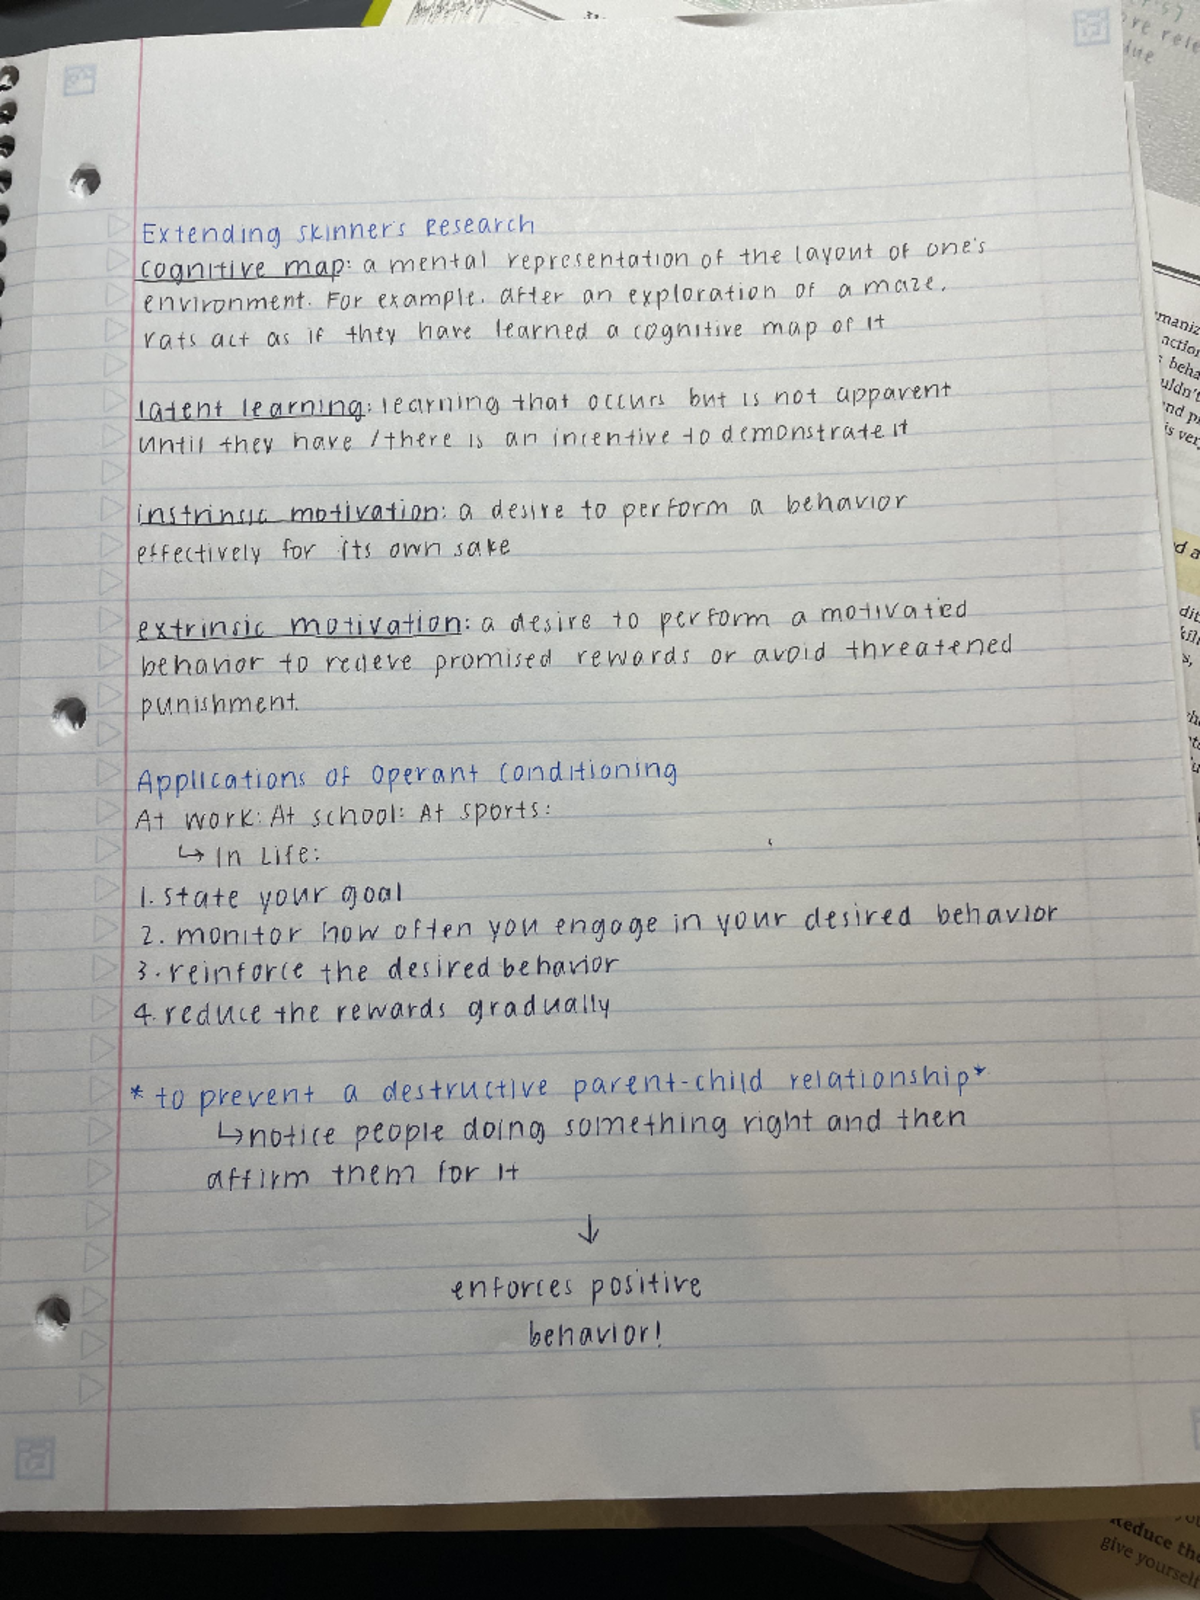 Extending skinner's Research
cognitive map: a mental representation of the layout of one's
environment. For example, after an exploration of a maze,
rats act as if they have learned a cognitive map of it
latent learning: learning that occurs but is not apparent
until they have / there is an incentive to demonstrate it
instrinsic motivation: a desire to perform a behavior
effectively for its own sake
extrinsic motivation: a desire to perform a motivatied
behavior to recieve promised rewards or avoid threatened
punishment.
Applications of Operant Conditioning
At work: At school: At sports:
↳ In Life:
1. state your goal
2. monitor how often you engage in your desired behavior
3. reinforce the desired behavior
4. reduce the rewards gradually
* to prevent a destructive parent-child relationship*
↳ notice people doing something right and then
affirm them for it
↓
enforces positive
behavior!
Reduce the
give yourself